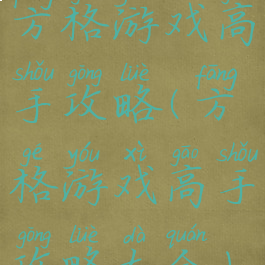 方格游戏高
shǒu gōng lüè fāng
手攻略(方
gé yóu xì gāo shǒu
格游戏高手
gōng lüè dà quán
攻略大全)